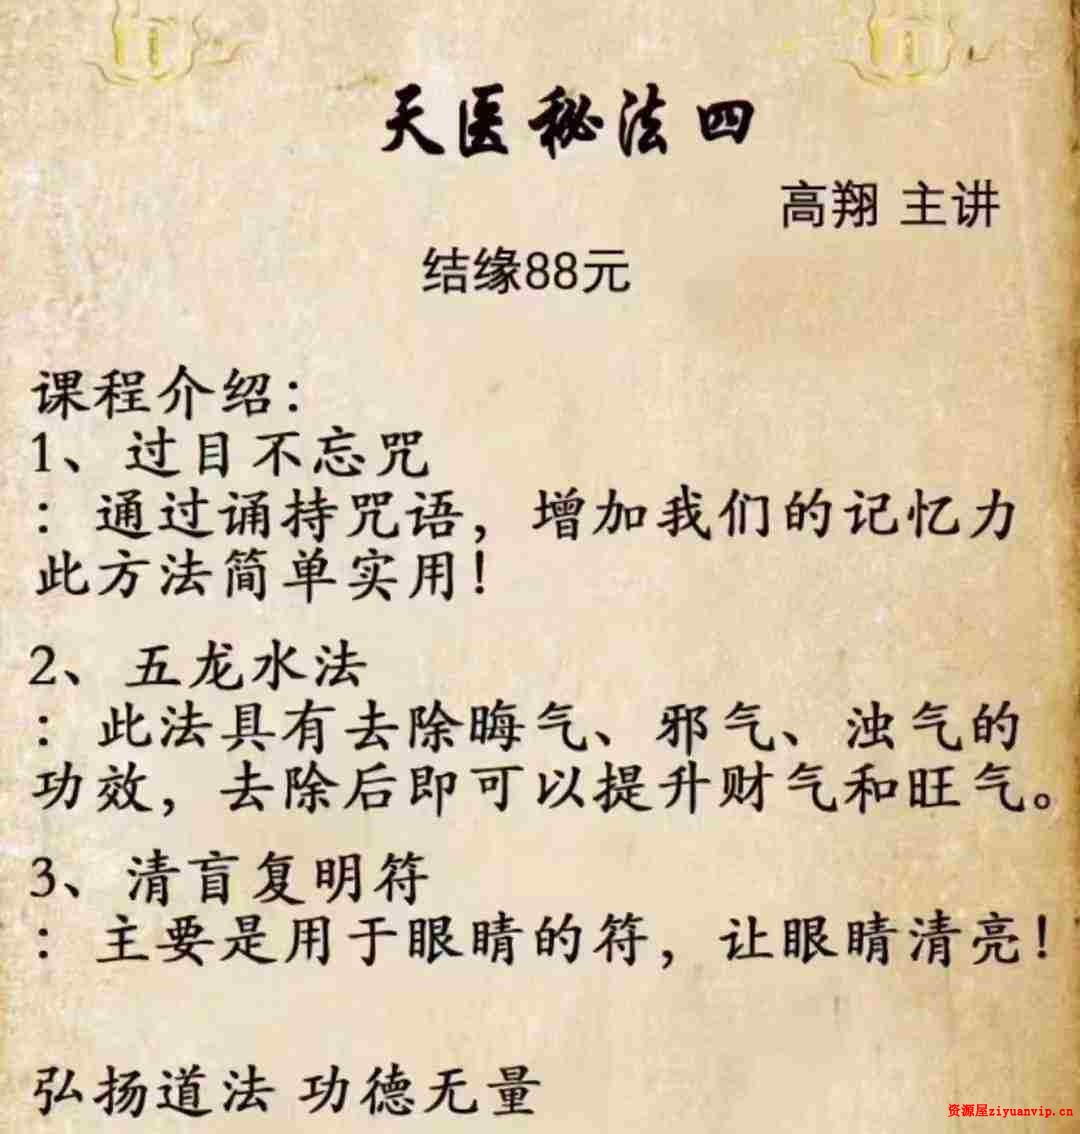 天医秘法四
高翔 主讲
结缘88元
课程介绍：
1、过目不忘咒
：通过诵持咒语，增加我们的记忆力
此方法简单实用！
2、五龙水法
：此法具有去除晦气、邪气、浊气的
功效，去除后即可以提升财气和旺气。
3、清盲复明符
：主要是用于眼睛的符，让眼睛清亮！
弘扬道法 功德无量
资源屋ziyuanvip.cn